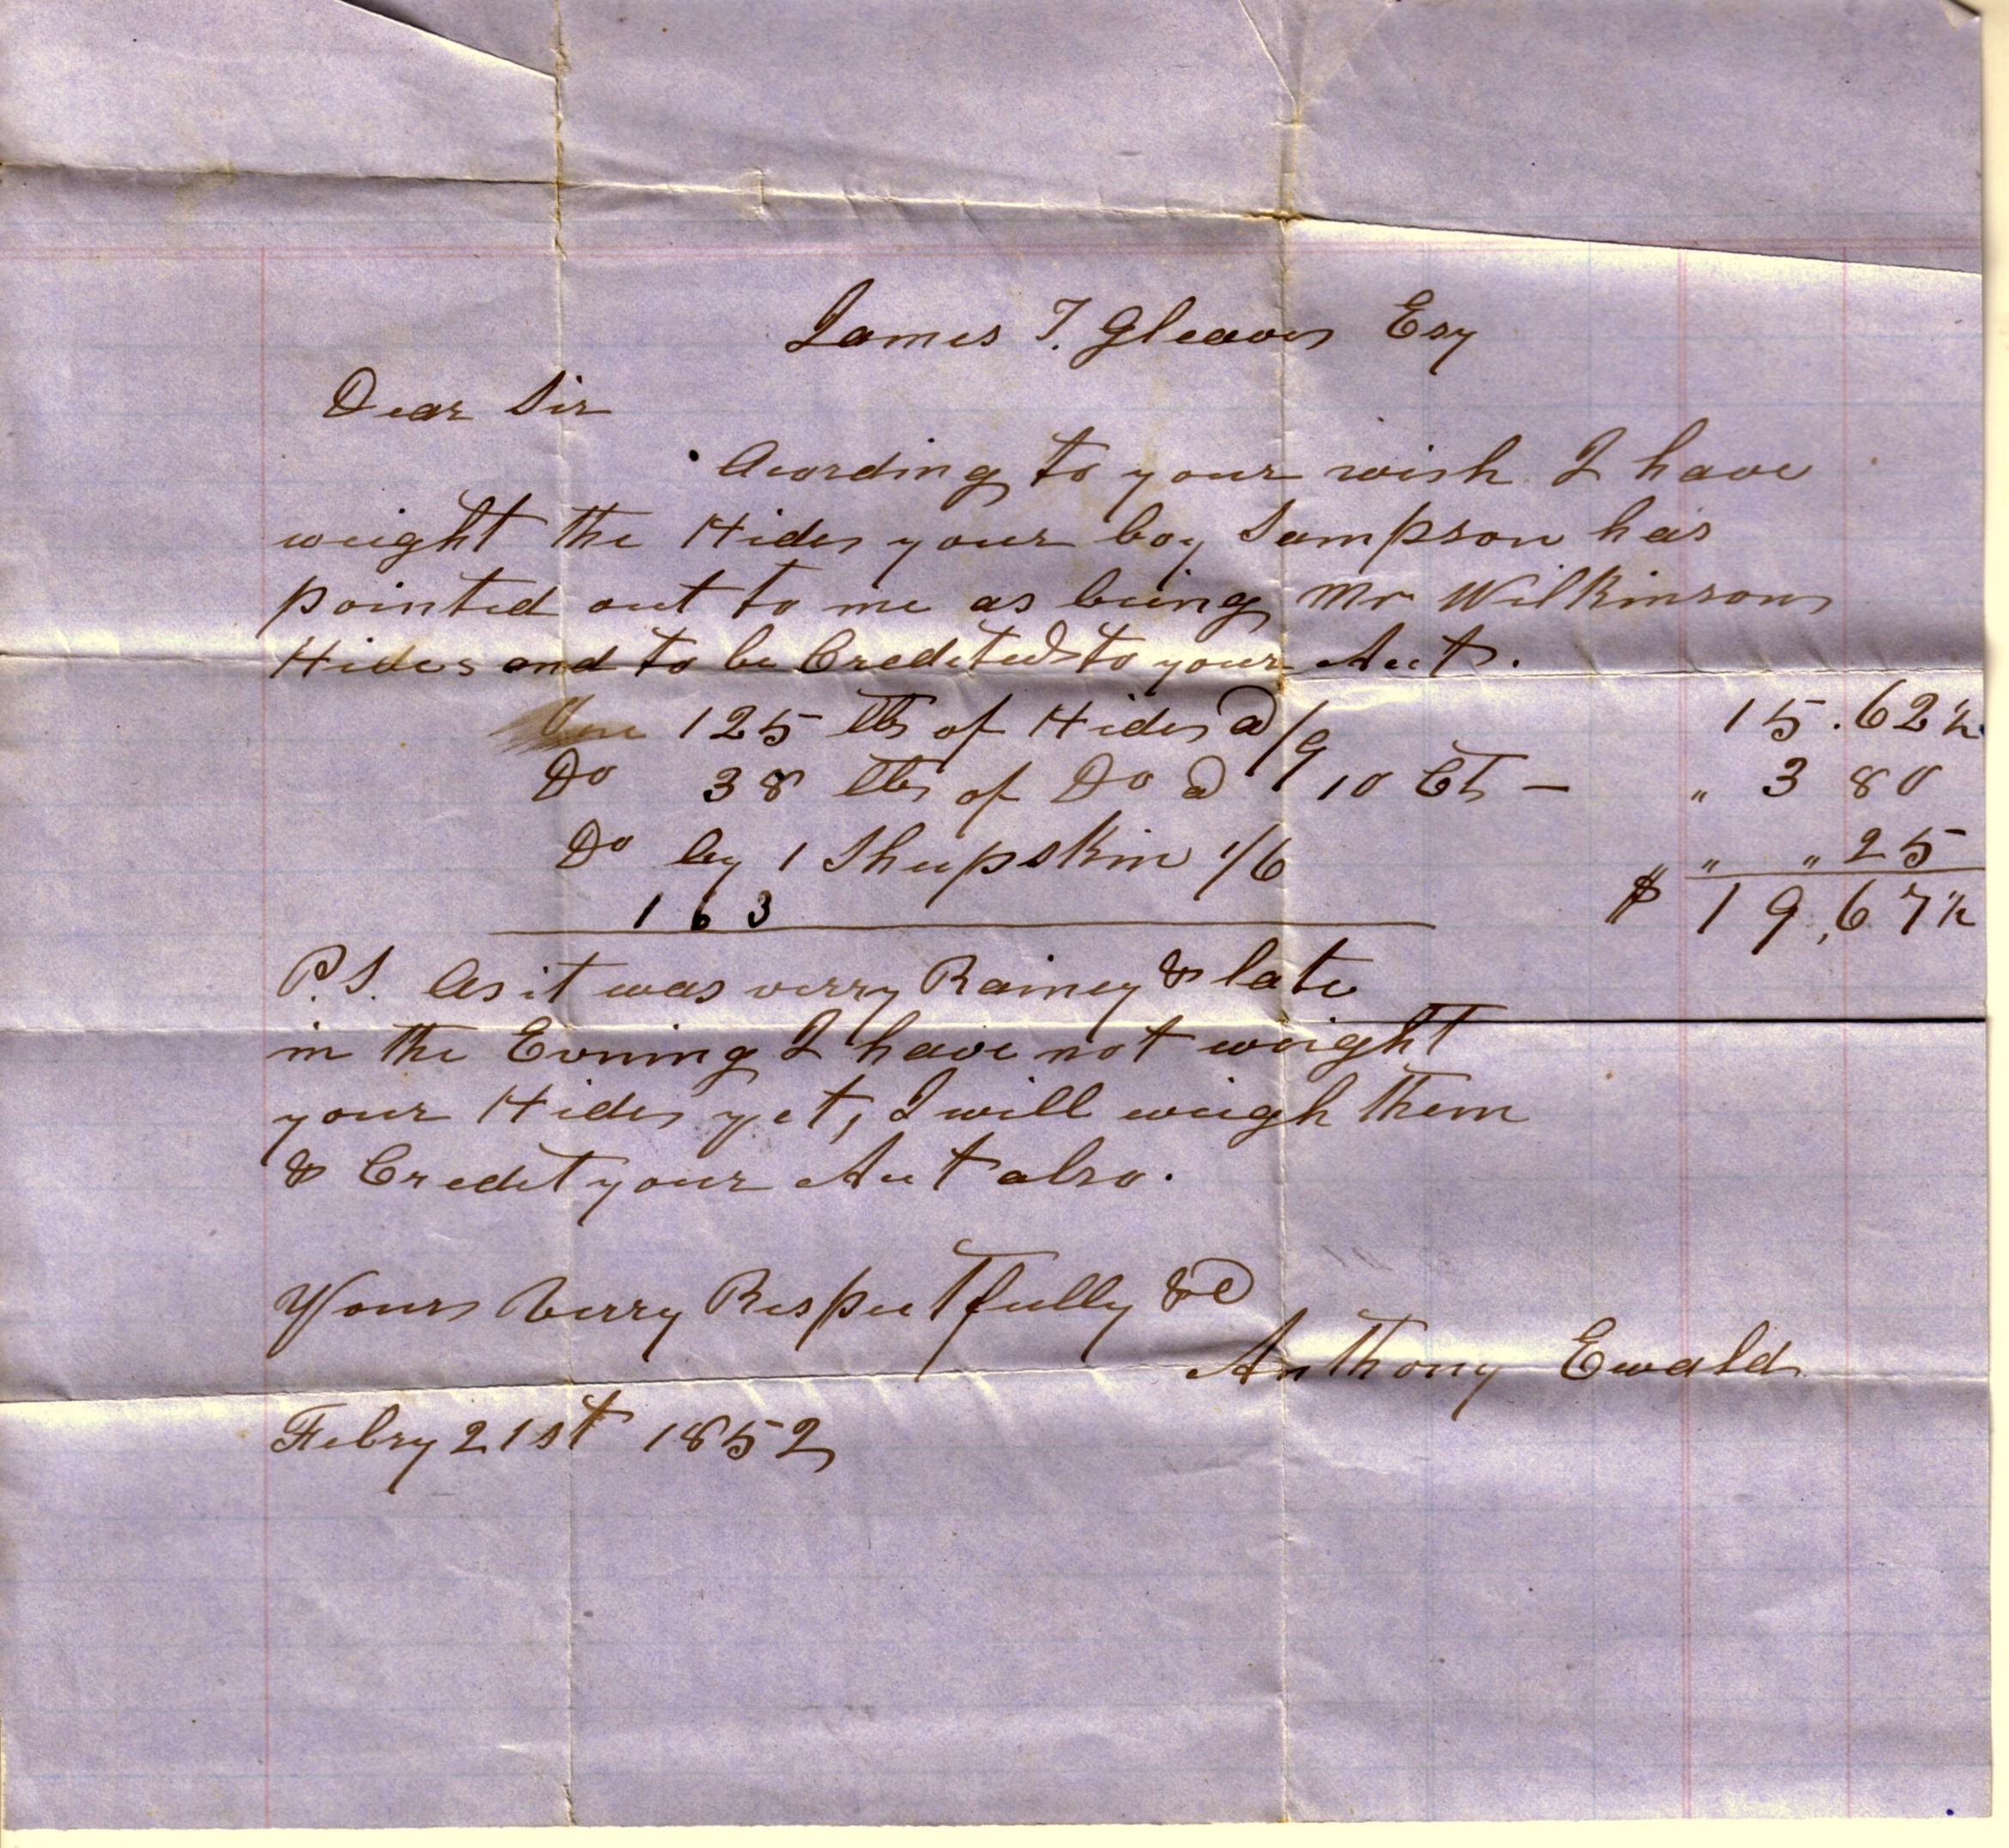 James T. Gleaves Esq
Dear Sir
Acording to your wish I have
weight the Hides your boy Sampson has
pointed out to me as being Mr Wilkinsons
Hides and to be Credited to your Acct.
125 lbs of Hides @ /9 15.62½
Do 38 lbs of Do @ 10 Cts — " 3 80
Do by 1 Sheepskin 1/6 " " 25
163 $ 19,67½
P.S. As it was verry Rainey & late
in the Evening I have not weight
your Hides yet, I will weigh them
& Credit your Acct also.
Yours Verry Respectfully &c
Anthony Ewald
Febry 21st 1852